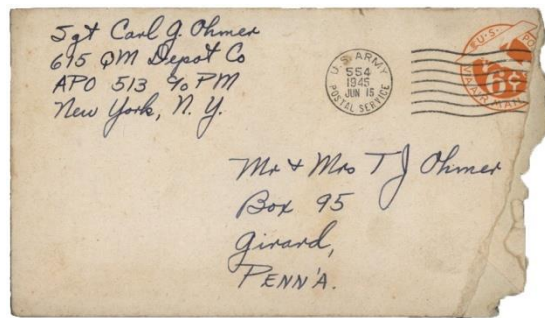 Sgt Carl G. Ohmer
695 QM Depot Co
APO 513 % PM
New York, N. Y.
U.S. ARMY
554
1945
JUN 15
POSTAL SERVICE
U.S.
6¢
VIA AIR MAIL
Mr + Mrs T J Ohmer
Box 95
Girard,
PENN'A.